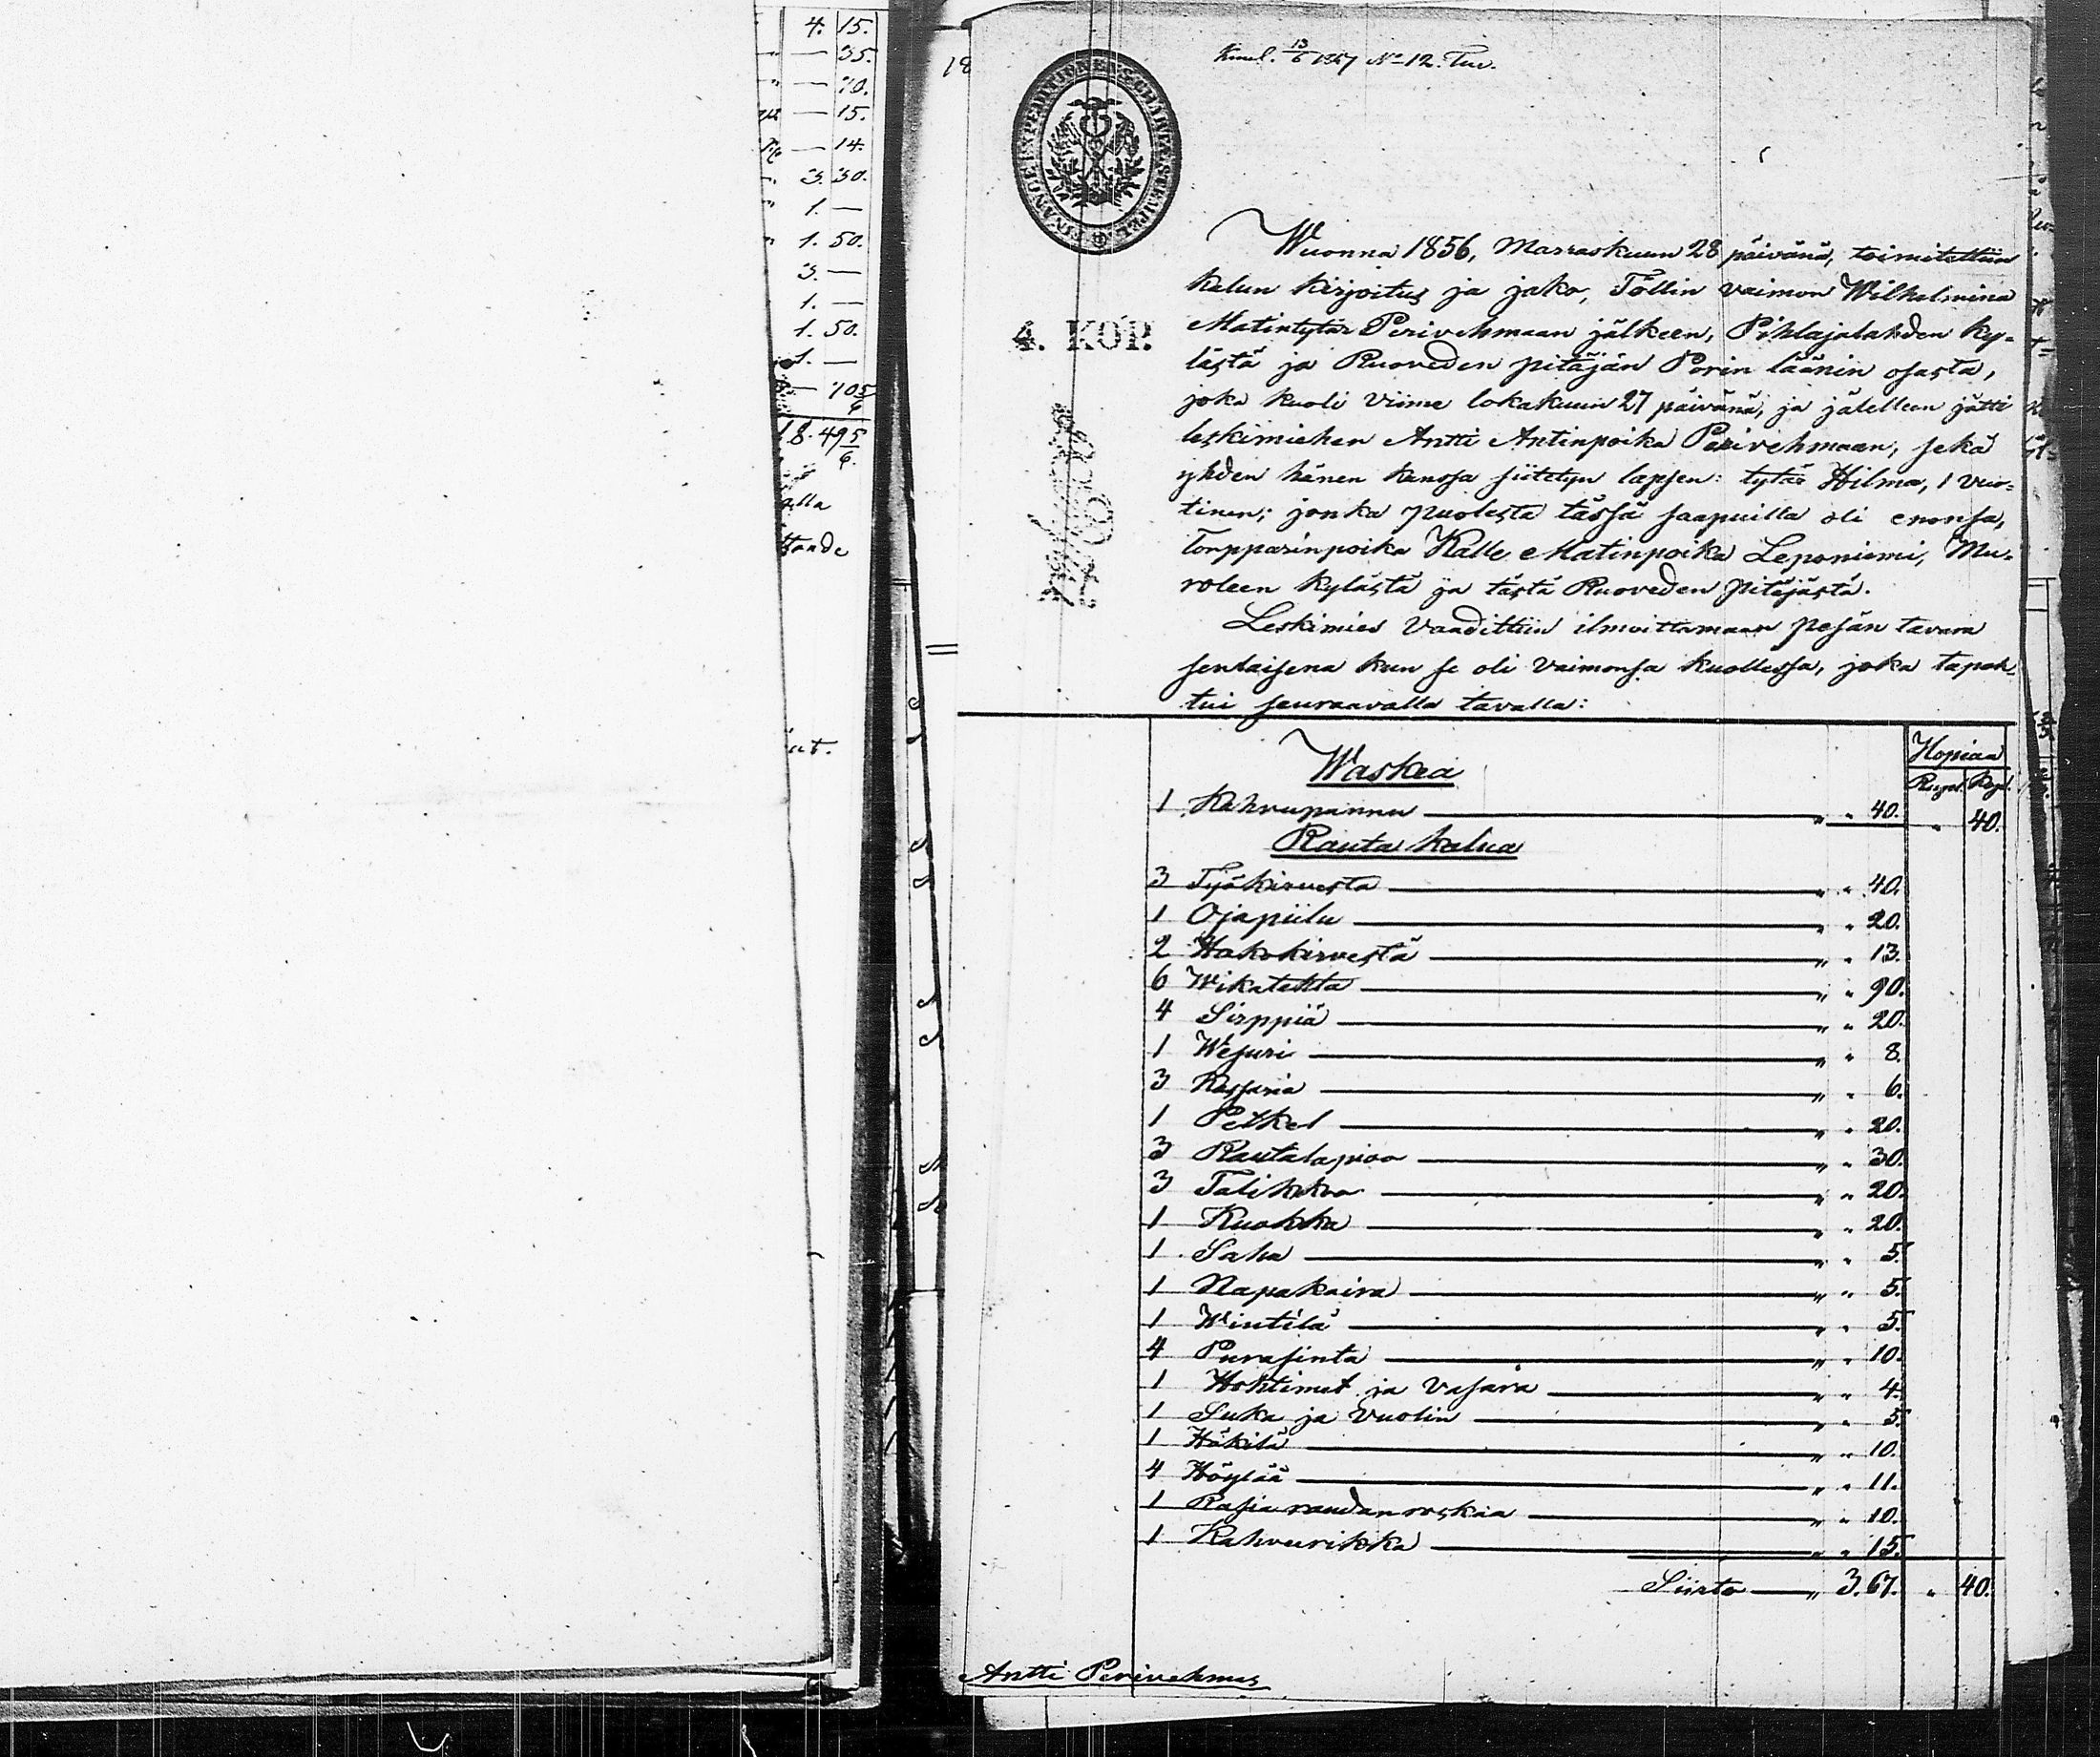 4. 15.
— 35.
— 70.
— 15.
— 14.
3. 30.
1. —
1. 50.
3. —
1. —
1. 50.
1. —
— 10 5/6
18. 49 5/6.
alla
18
No 12.
FINANCE EXPEDITIONENS CHARTÆ STEMPEL
4. KOP.
Wuonna 1856, Marraskuun 28 päivänä, toimitettiin
kalun kirjoitus ja jako, Töllin vaimon Wilhelmina
Matintytär Perivehmaan jälkeen, Pihlajalahden ky-
lästä ja Ruoveden pitäjän Porin läänin osasta,
joka kuoli viime lokakuun 27 päivänä, ja jälelleen jätti
leskimiehen Antti Antinpoika Perivehmaan, sekä
yhden hänen kanssa siitetyn lapsen: tytär Hilma, 1 vuo-
tinen; jonka puolesta tässä saapuilla oli enonsa,
Torpparinpoika Kalle Matinpoika Leponiemi, Mu-
roleen kylästä ja tästä Ruoveden pitäjästä.
Leskimies vaadittiin ilmoittamaan pesän tavara
senlaisena kun se oli vaimonsa kuollessa, joka tapah-
tui seuraavalla tavalla:
Hopiaa
Rupl. Kopl.
Waskea
1 Kahvupannu — " " 40. " 40.
Rauta kalua
3 Työkirvestä — " " 40.
1 Ojapiilu — " " 20.
2 Hakokirvestä — " " 13.
6 Wikatehta — " " 90.
4 Sirppiä — " " 20.
1 Wesuri — " " 8.
3 Kassaria — " " 6.
1 Petkel — " " 20.
3 Rautalapioo — " " 30.
3 Talikkoo — " " 20.
1 Kuokka — " " 20.
1 Saha — " " 5.
1 Napakaira — " " 5.
1 Wintilä — " " 5.
4 Purasinta — " " 10.
1 Hohtimet ja vasara — " " 4.
1 Suka ja vuolin — " " 5.
1 Häkilä — " " 10.
4 Höylää — " " 11.
1 Rasia raudan roskaa — " " 10.
1 Kahvurikka — " " 15.
Siirto — " 3. 67. " 40.
Antti Perivehmas